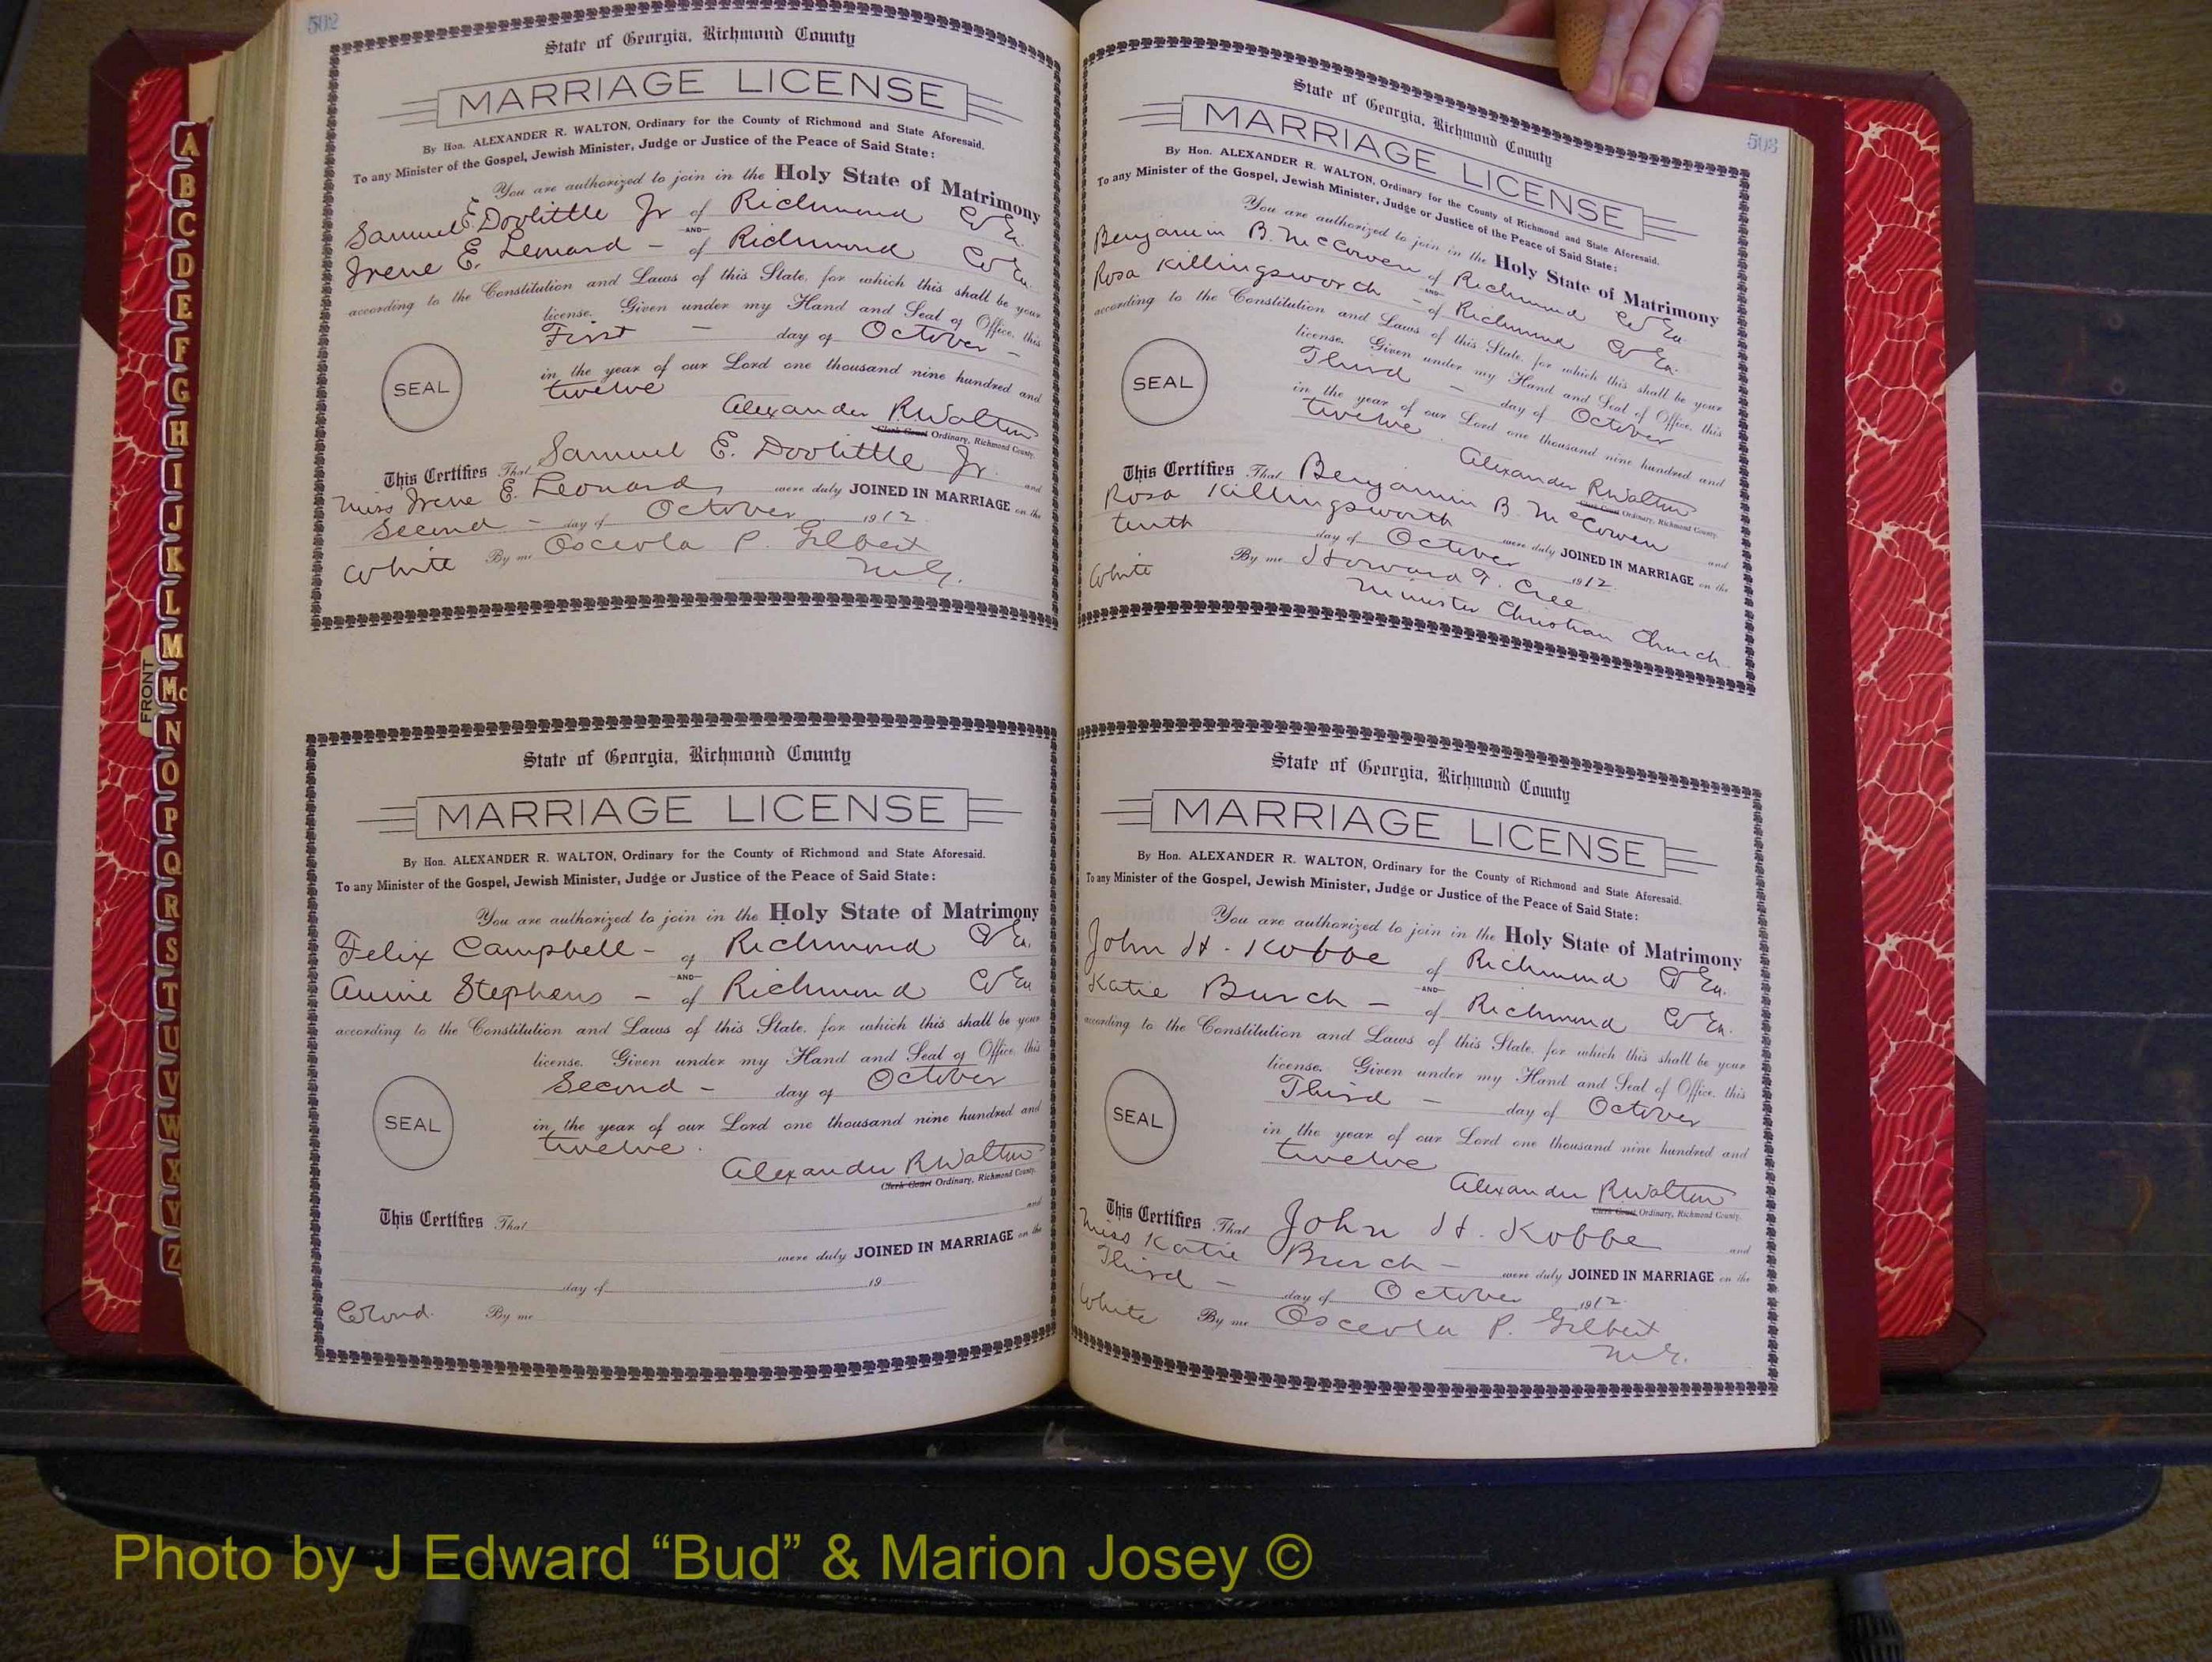 502
State of Georgia, Richmond County
MARRIAGE LICENSE
By Hon. ALEXANDER R. WALTON, Ordinary for the County of Richmond and State Aforesaid.
To any Minister of the Gospel, Jewish Minister, Judge or Justice of the Peace of Said State:
You are authorized to join in the Holy State of Matrimony
Samuel E. Doolittle Jr of Richmond Co Ga.
AND
Irene E. Leonard - of Richmond Co Ga.
according to the Constitution and Laws of this State, for which this shall be your
license. Given under my Hand and Seal of Office, this
First - day of October -
in the year of our Lord one thousand nine hundred and
twelve
SEAL
Alexander R Walton
Clerk Court Ordinary, Richmond County.
This Certifies That Samuel E. Doolittle Jr. and
Miss Irene E. Leonard were duly JOINED IN MARRIAGE on the
Second - day of October 1912
White By me Osceola P. Gilbert
M.G.
State of Georgia, Richmond County
MARRIAGE LICENSE
By Hon. ALEXANDER R. WALTON, Ordinary for the County of Richmond and State Aforesaid.
To any Minister of the Gospel, Jewish Minister, Judge or Justice of the Peace of Said State:
You are authorized to join in the Holy State of Matrimony
Felix Campbell - of Richmond Co Ga.
AND
Annie Stephens - of Richmond Co Ga
according to the Constitution and Laws of this State, for which this shall be your
license. Given under my Hand and Seal of Office, this
Second - day of October
in the year of our Lord one thousand nine hundred and
twelve.
SEAL
Alexander R Walton
Clerk Court Ordinary, Richmond County.
This Certifies That and
were duly JOINED IN MARRIAGE on the
day of 19
Colord. By me
503
State of Georgia, Richmond County
MARRIAGE LICENSE
By Hon. ALEXANDER R. WALTON, Ordinary for the County of Richmond and State Aforesaid.
To any Minister of the Gospel, Jewish Minister, Judge or Justice of the Peace of Said State:
You are authorized to join in the Holy State of Matrimony
Benjamin B. McCowen of Richmond Co Ga.
AND
Rosa Killingsworth - of Richmond Co Ga.
according to the Constitution and Laws of this State, for which this shall be your
license. Given under my Hand and Seal of Office, this
Third - day of October
in the year of our Lord one thousand nine hundred and
twelve
SEAL
Alexander R Walton
Clerk Court Ordinary, Richmond County.
This Certifies That Benjamin B. McCowen and
Rosa Killingsworth were duly JOINED IN MARRIAGE on the
tenth day of October 1912
White By me Howard T. Cree
Minister Christian Church
State of Georgia, Richmond County
MARRIAGE LICENSE
By Hon. ALEXANDER R. WALTON, Ordinary for the County of Richmond and State Aforesaid.
To any Minister of the Gospel, Jewish Minister, Judge or Justice of the Peace of Said State:
You are authorized to join in the Holy State of Matrimony
John H. Kobbe of Richmond Co Ga.
AND
Katie Burch - of Richmond Co Ga.
according to the Constitution and Laws of this State, for which this shall be your
license. Given under my Hand and Seal of Office, this
Third - day of October
in the year of our Lord one thousand nine hundred and
twelve
SEAL
Alexander R Walton
Clerk Court Ordinary, Richmond County.
This Certifies That John H. Kobbe and
Miss Katie Burch - were duly JOINED IN MARRIAGE on the
Third - day of October 1912
White By me Osceola P. Gilbert
M.G.
A
B
C
D
E
F
G
H
I
J
K
L
M
Mc
N
O
P
Q
R
S
T
U
V
W
X
Y
Z
FRONT
Photo by J Edward “Bud” & Marion Josey ©